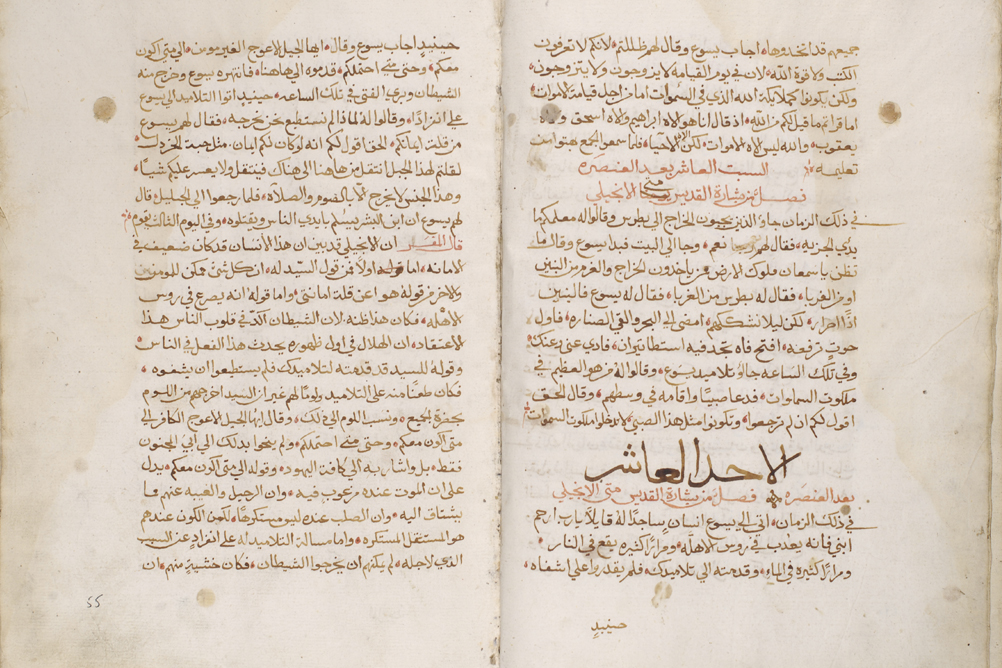 جميعهم قد اتخدوها، اجاب يسوع وقال لهم ظللتم، لانكم لا تعرفون
الكتب ولا قوة الله، لان في يوم القيامه لا يزوجون ولا يتزوجون،
ولكن يكونوا كملايكة الله الذي في السموات اما من اجل قيامة الاموات،
اما قراتم ما قيل لكم من الله، اذ قال انا هو الاه ابراهيم والاه اسحق والاه
يعقوب، والله ليس الاه الاموات، لكن الاه الاحيا، فلما سمعوا الجمع بهتوا من
تعليمه،
السبت العاشر بعيد العنصره
فصل من بشارة القديس متى الانجيلي
في ذلك الزمان جاوا الذين يجبون الخراج الى بطرس وقالوا له معلمكم ما
يدي الجزيه، فقال لهم نعم، وجا الى البيت فبدا يسوع وقال ما
تظن يا سمعان ملوك الارض ممن ياخدون الخراج والغرم من البنين
او من الغربا، فقال له بطرس من الغربا، فقال له يسوع فالبنين
اذًا احرار، لكن ليلا نشككهم، امضي الى البحر والقي الصناره، فاول
حوت ترفعه، افتح فاه تجد فيه استطاتيران، فادي عني وعنك
وفي تلك الساعه جاوا تلاميد يسوع، وقالوا له من هو العظيم في
ملكوت السماوات، فدعا صبيًا واقامه في وسطهم، وقال الحق
اقول لكم ان لم ترجعوا، وتكونوا مثل هذا الصبي، لا تدخلوا ملكوت السموات
الاحد العاشر
بعد العنصره فصل من بشارة القديس متى الانجيلي
في ذلك الزمان، اتى الى يسوع انسان ساجدًا له قايلًا يا رب ارحم
ابني فانه يعذب في روس الاهله، ومرارًا كثيره يقع في النار
ومرارًا كثيره في الماء، وقدمته الى تلاميدك، فلم يقدروا على اشفاه،
حينيدٍ
حينيدٍ اجاب يسوع وقال، ايها الجيل الاعوج الغير مومن، الى متى اكون
معكم، وحتى متى احتملكم، قدموه الى هاهنا، فانتهره يسوع وخرج منه
الشيطان وبري الفتى في تلك الساعه، حينيدٍ اتوا التلاميد الى يسوع
على انفرادٍ، وقالوا له لماذا لم نستطع نحن نخرجه، فقال لهم يسوع
من قلت ايمانكم، الحق اقول لكم انه لو كان لكم ايمان، مثل حبة الخردل
لقلتم لهذا الجبل انتقل من هاهنا الى هناك فينتقل ولا يعسر عليكم شيًا،
وهذا الجنس لا يخرج الا بالصوم والصلاة، فلما رجعوا الى الجليل قال
لهم يسوع ان ابن البشر يسلم بايدي الناس ويقتلوه، وفي اليوم الثالث يقوم
قال المفسر ان الانجيلي قد بين ان هذا الانسان قد كان ضعيف في
الامانه، اما اولًا فمن قول السيد له، ان كل شي ممكن للمومنين
والاخر من قوله هو اعن قلة امانتي، واما قوله انه يصرع في روس
الاهله، فكان هذا ظنه، لان الشيطان اكد في قلوب الناس هذا
الاعتقاد، ان الهلال في اول ظهوره يحدث هذا الفعل في الناس،
وقوله للسيد قد قدمته لتلاميدك فلم يستطيعوا ان يشفوه،
فكان طعنًا منه على التلاميد ولومًا لهم غير ان السيد اخرجهم من اللوم
بحضرة الجميع، ونسب اللوم الى ذلك، وقال ايها الجيل الاعوج الكافر الى
متى اكون معكم، وحتى متى احتملكم، ولم ينحوا بدلك الى ابي المجنون
فقط، بل واشار به الى كافة اليهود، وقوله الى متى اكون معكم، يدل
على ان الموت عنده مرغوب فيه، وان الرحيل والغيبه عنهم ما
يشتاق اليه، وان الصلب عنده ليس مستكرهًا، لكن الكون عندهم
هو المستثقل المستكره، واما مسالة التلاميد له على انفرادٍ عن السبب
الذي لاجله، لم يمكنهم ان يخرجوا الشيطان، فكان خشيةٍ منهم، ان
55